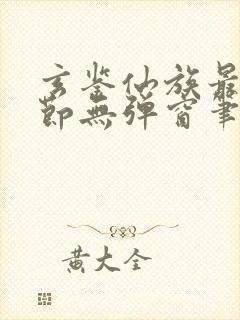 玄鉴仙族最
节无弹窗笔
黄大全